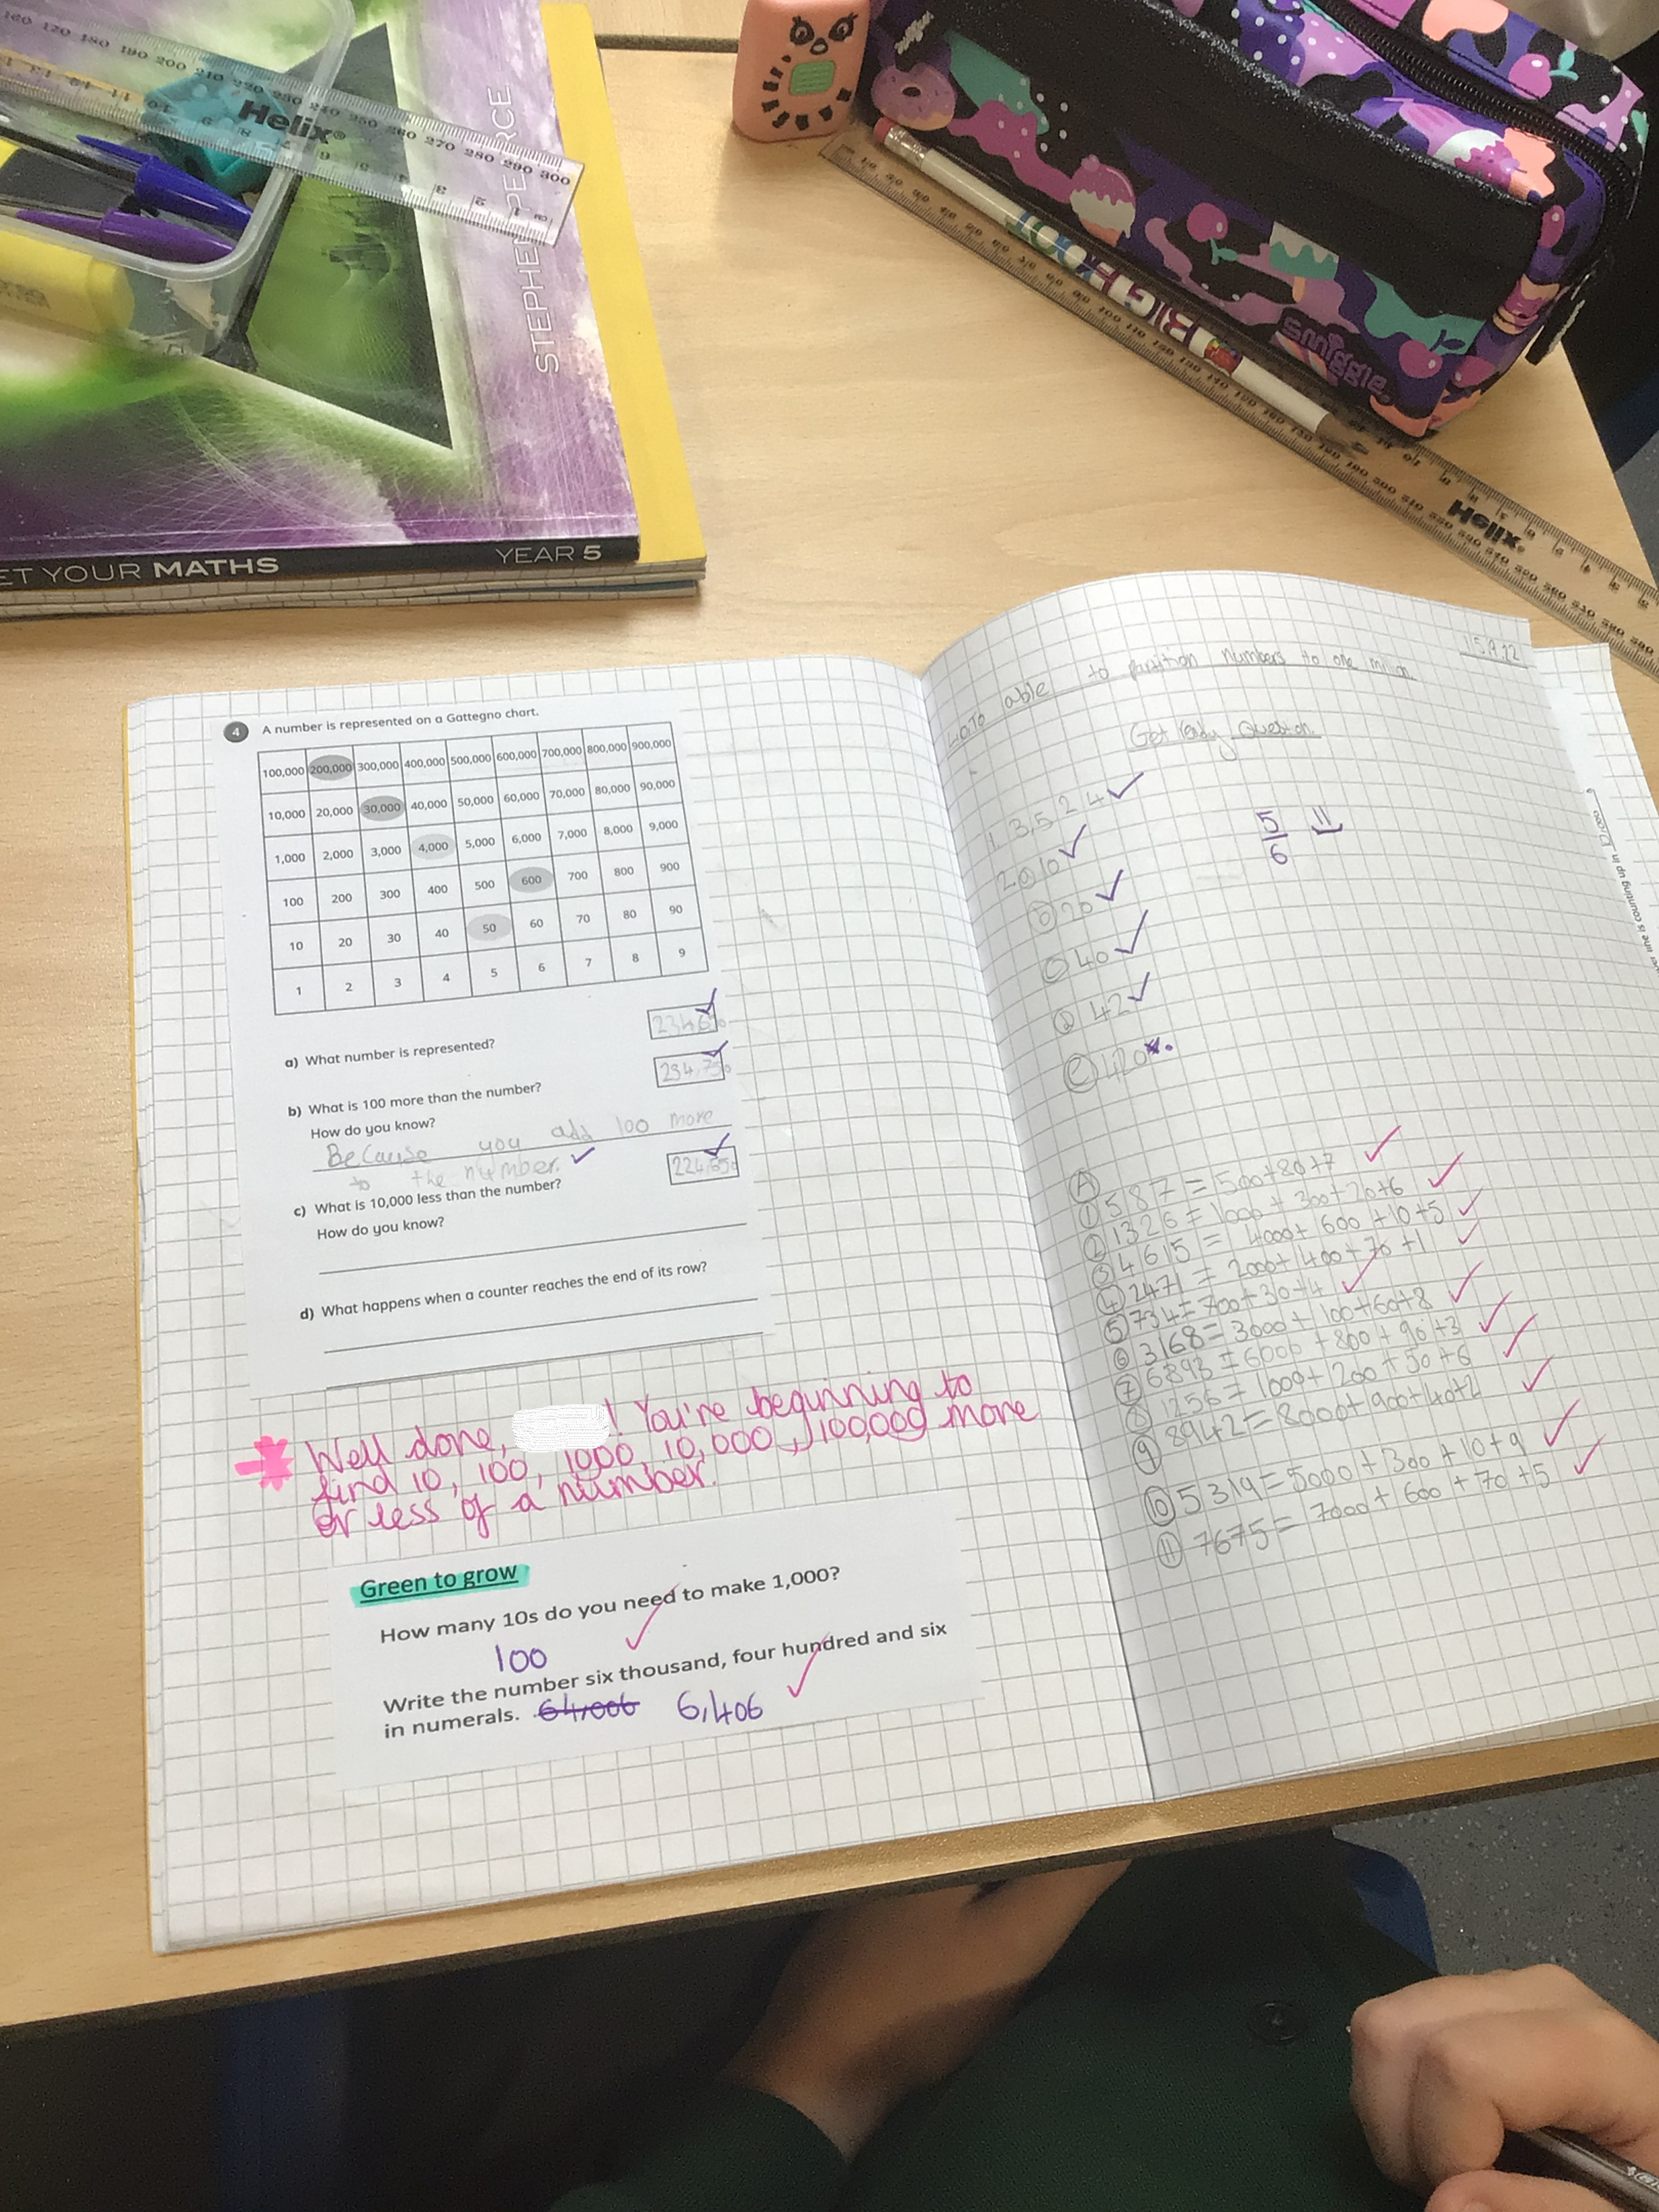 Helix
STEPHEN PEARCE
ET YOUR MATHS YEAR 5
BIG FOOT
smiggle
Helix
4 A number is represented on a Gattegno chart.
100,000 200,000 300,000 400,000 500,000 600,000 700,000 800,000 900,000
10,000 20,000 30,000 40,000 50,000 60,000 70,000 80,000 90,000
1,000 2,000 3,000 4,000 5,000 6,000 7,000 8,000 9,000
100 200 300 400 500 600 700 800 900
10 20 30 40 50 60 70 80 90
1 2 3 4 5 6 7 8 9
a) What number is represented?
b) What is 100 more than the number?
234,750
How do you know?
Because you add 100 more
to the number.
c) What is 10,000 less than the number?
224,650
How do you know?
d) What happens when a counter reaches the end of its row?
Well done, ! You're beginning to
find 10, 100, 1000, 10,000, 100,000 more
or less of a number.
Green to grow
How many 10s do you need to make 1,000?
100
Write the number six thousand, four hundred and six
in numerals. 64,006 6,406
15.9.22
able to partition numbers to one
Get ready Question
1 3,524
2 a 10
b 20
c 40
d 42
e 420
5
6
A
1 587 = 500+80+7
2 1326 = 1000 + 300+20+6
3 4615 = 4000+ 600 +10+5
4 2471 = 2000+ 400+70 +1
5 734= 700+30+4
6 3168= 3000+ 100+60+8
7 6893 = 6000 +800 + 90 +3
8 1256= 1000+ 200 + 50 +6
9 8942= 8000+ 900+40+2
10 5319=5000+ 300 + 10+9
11 7675= 7000+ 600 + 70 +5
line is counting up in